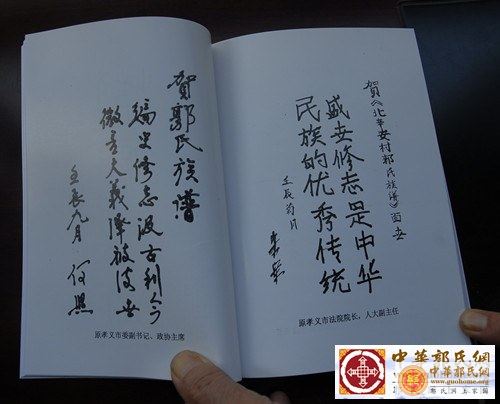 贺郭氏族谱
编史修志汲古利今
微言大义泽被后世
壬辰九月
原孝义市委副书记、政协主席
贺《北辛安村郭氏族谱》面世
盛世修志是中华
民族的优秀传统
壬辰菊月
原孝义市法院院长，人大副主任
中華郭氏網
中華郭氏網
www.guohome.org
郭氏网上家园